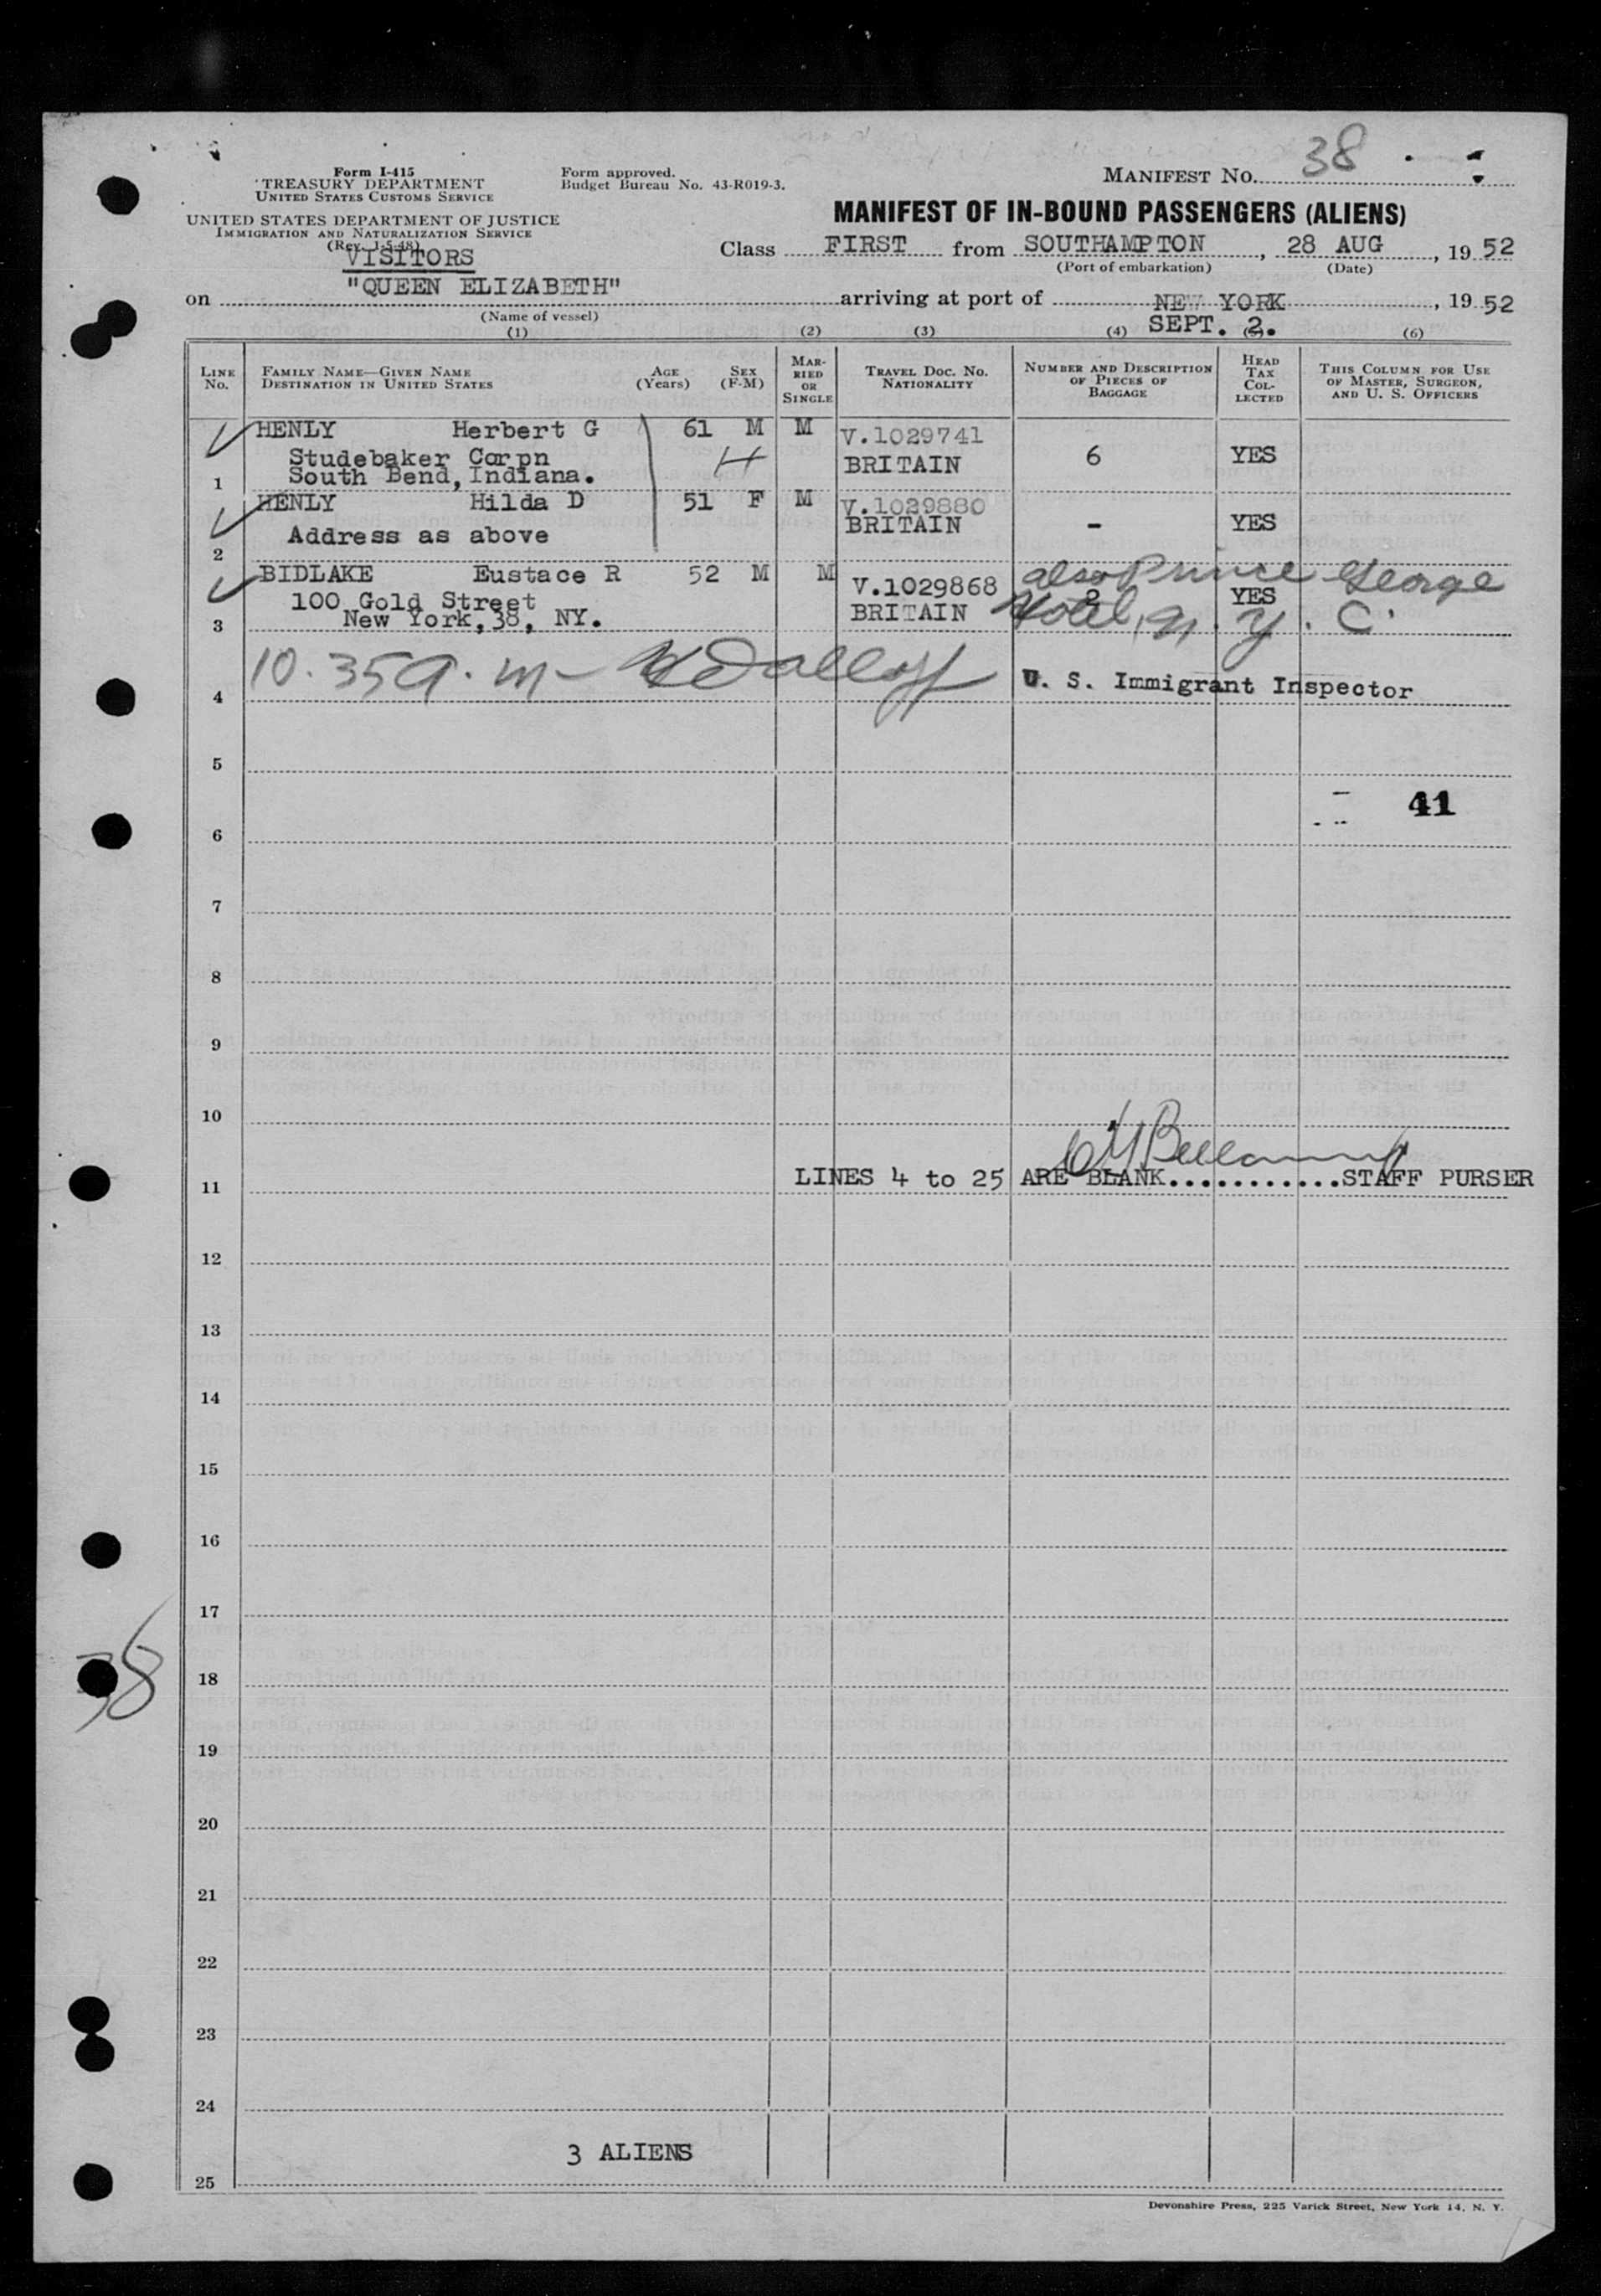 38
Form I-415
TREASURY DEPARTMENT
UNITED STATES CUSTOMS SERVICE
Form approved.
Budget Bureau No. 43-R019-3.
MANIFEST No. 38
UNITED STATES DEPARTMENT OF JUSTICE
IMMIGRATION AND NATURALIZATION SERVICE
(Rev. 1-5-48)
MANIFEST OF IN-BOUND PASSENGERS (ALIENS)
VISITORS
Class FIRST from SOUTHAMPTON, 28 AUG, 1952
(Port of embarkation) (Date)
on "QUEEN ELIZABETH" arriving at port of NEW YORK, 1952
(Name of vessel) SEPT. 2.
(1) (2) (3) (4) (5) (6)
LINE No. FAMILY NAME—GIVEN NAME DESTINATION IN UNITED STATES AGE (Years) SEX (F-M) MARRIED OR SINGLE TRAVEL DOC. NO. NATIONALITY NUMBER AND DESCRIPTION OF PIECES OF BAGGAGE HEAD TAX COLLECTED THIS COLUMN FOR USE OF MASTER, SURGEON, AND U. S. OFFICERS
HENLY Herbert G 61 M M V.1029741
Studebaker Corpn H BRITAIN 6 YES
1 South Bend, Indiana.
HENLY Hilda D 51 F M V.1029880
Address as above BRITAIN - YES
2
BIDLAKE Eustace R 52 M M V.1029868 also Prince George
100 Gold Street 2 YES
3 New York, 38, NY. BRITAIN Hotel, N.Y.C.
10.35 a.m-
4 U. S. Immigrant Inspector
5
41
6
7
8
9
10
11 LINES 4 to 25 ARE BLANK...........STAFF PURSER
12
13
14
15
16
17
38
18
19
20
21
22
23
24
3 ALIENS
25
Devonshire Press, 225 Varick Street, New York 14, N. Y.